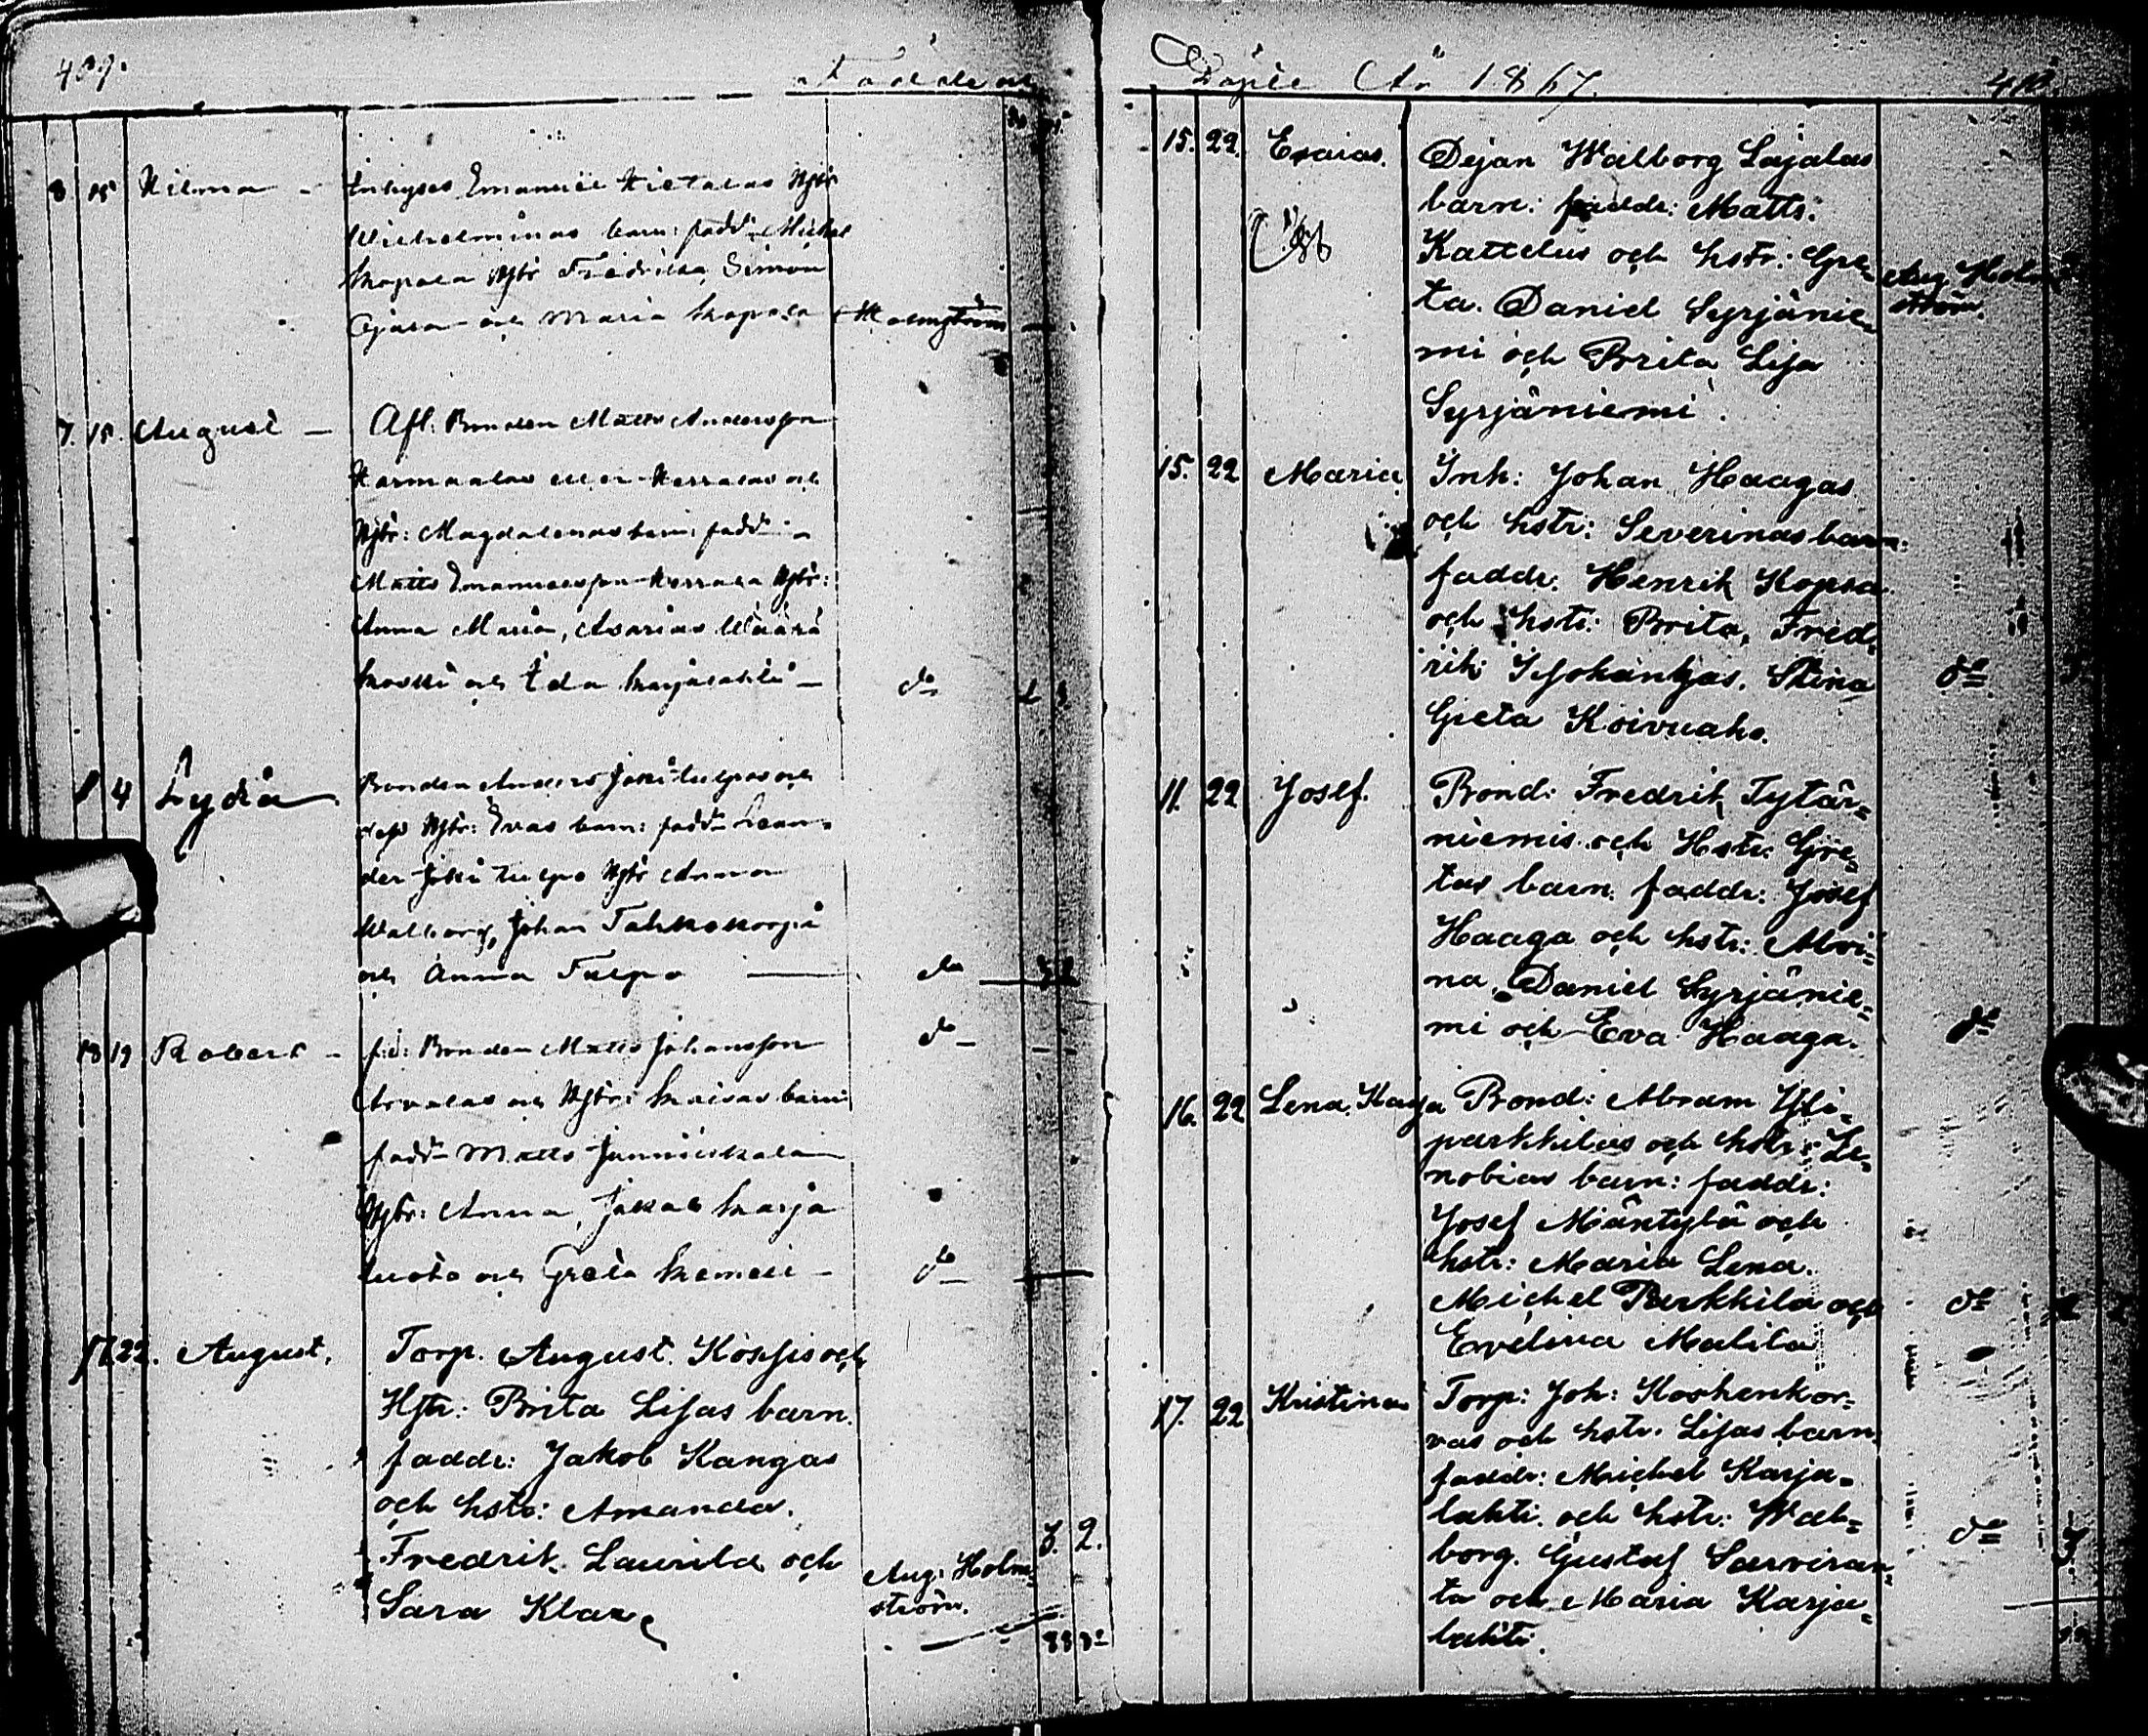 409.
Födde och
3 15 Hilma -
Inhyses Emanuel Hietalas Hstr
Wilhelminas barn: fadd: Michel
Kopsa Hstr Fredrika, Simon
Ojala och Maria Kopsa
Holmström
7. 15. August -
Afl: Bonden Matts Andersson
Hstr: Magdalenas barn: fadd: -
Matts Emanuelsson Hstr:
Anna Maria,
och Ida Karjalahti -
do
1 4 Lydia
Bonden Anders Jokitulpos och
dess Hstr: Evas barn: fadd: Lean-
der Jokitulpo Hstr Anna
Walborg, Johan Tahkokorpi
och Anna Tulpo
do
do
18 19 Robert -
Bonden Matts Johansson
Arvolas och Hstr: Kaisas barn
fadd: Matts Junnikkala
Hstr: Anna, Jakob Karja
luoto och Greta
do
17. 22. August.
Torp. August
Hstr: Brita Lisas barn.
faddr: Jakob Kangas
och hstr: Amanda.
Fredrik Laurila och
Sara
Aug: Holm-
ström.
3. 2.
Döpte År 1867.
410.
15. 22. Esaias.
Dejan Walborg Lajalas
barn: faddr: Matts.
Kattelus och hstr: Gre-
ta. Daniel Syrjänie-
mi och Brita Lisa
Syrjäniemi.
Aug Holm-
ström.
15. 22 Maria
Inh: Johan Haagas
och hstr: Severinas barn:
faddr. Henrik Kopsa
och hstr: Brita, Fred-
rik Isohankas. Stina
Greta Koivuaho.
do
11. 22 Josef.
Bond: Fredrik Tytär-
niemis och Hstr: Gre-
tas barn. faddr: Josef
Haaga och hstr: Alvi-
na, Daniel Syrjänie-
mi och Eva Haaga.
do
16. 22 Lena Kaja
Bond: Abram Yli-
parkkilas och hstr: Ze-
nobias barn: faddr:
Josef Mäntylä och
hstr: Maria Lena.
Michel Parkkila och
Evelina Matila
do
17. 22 Kristina
Torp: Joh: Koskenkor-
vas och hstr. Lisas barn.
faddr: Michel Karja-
lahti och hstr: Wal-
borg. Gustaf Sarviran-
ta och Maria Karja-
lahti.
do